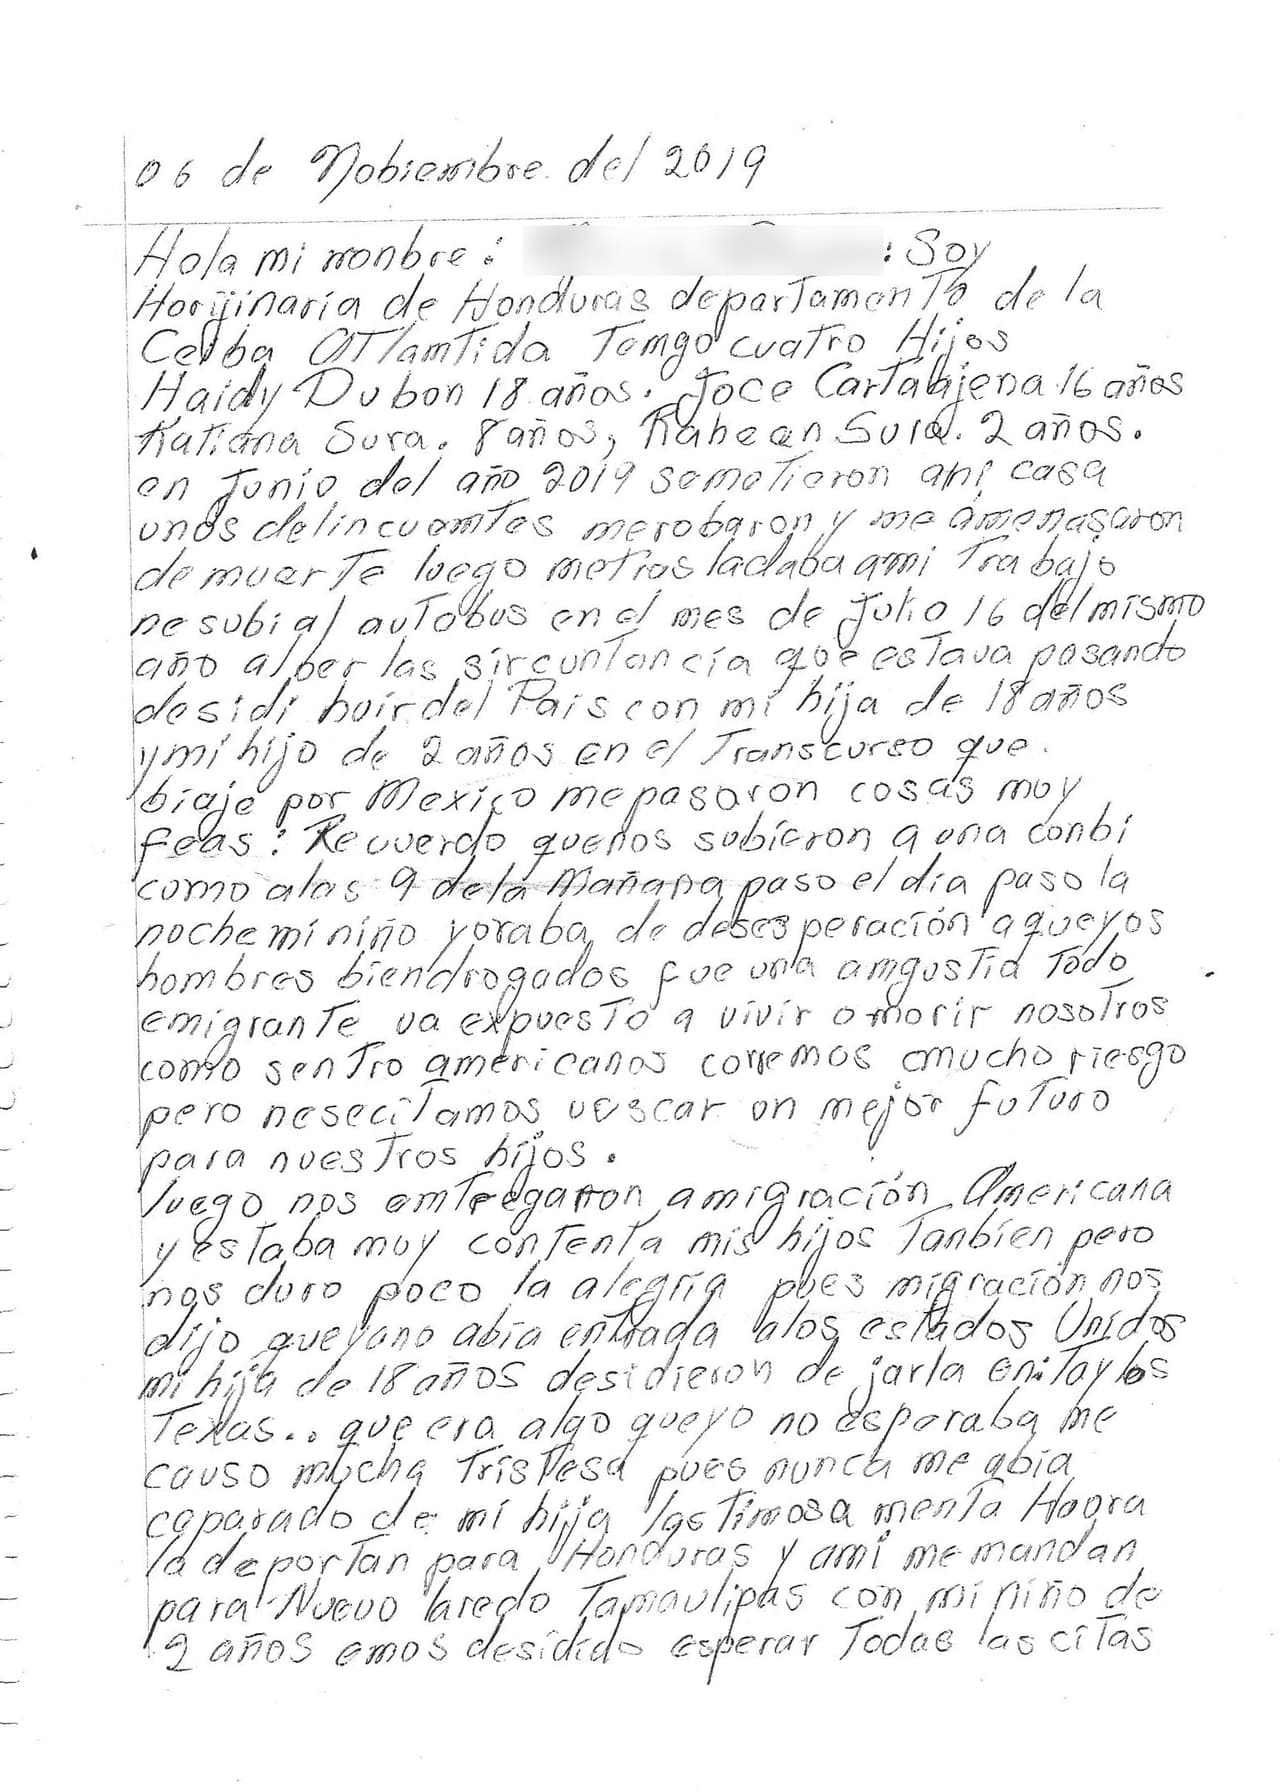 06 de Nobiembre del 2019
Hola mi nonbre: : Soy
Horijinaria de Honduras departamento de la
Ceiba Atlamtida Temgo cuatro Hijos
Haidy Dubon 18 años. Joce Cartaajena 16 años
Katiana Sura. 8 años, Sura. 2 años.
en Junio del año 2019 semetieron ami casa
unos delincuemtes merobaron y me amenasaron
de muerte luego metrasladaba ami Trabajo
me subi al autobus en el mes de Julio 16 del mismo
año alber las sircuntancia que estava pasando
desidi huir del Pais con mi hija de 18 años
y mi hijo de 2 años en el Transcurso que.
biaje por Mexico mepasaron cosas muy
feas: Recuerdo quenos subieron a una conbi
como alas 9 dela Mañana paso el dia paso la
noche mi niño yoraba de desesperación aqueyos
hombres biendrogados fue una amgustia Todo
emigrante va expuesto a vivir o morir nosotros
como sentro americanos corremos mucho riesgo
pero nesecitamos vuscar un mejor futuro
para nuestros hijos.
luego nos emtregaron a migración Americana
y estaba muy contenta mis hijos Tanbien pero
nos duro poco la alegría pues migración nos
dijo queyano abia entrada alos estados Unidos
mi hija de 18 años desidieron dejarla en Taylos
Texas.. que era algo queyo no esperaba me
causo mucha Tristesa pues nunca me abia
ceparado de mi hija lastimosa mente Haora
la deportan para Honduras y ami me mandan
para Nuevo laredo Tamaulipas con mi niño de
2 años emos desidido esperar Todas las citas